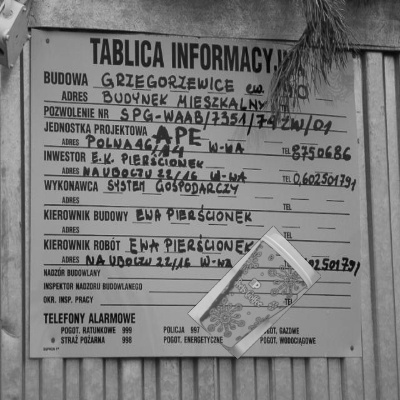 TABLICA INFORMACYJ
BUDOWA GRZEGORZEWICE ew. 90
ADRES BUDYNEK MIESZKALNY
POZWOLENIE NR SPG-WAAB/7351/74ZW/01
JEDNOSTKA PROJEKTOWA APE
ADRES POLNA 46/44 W-WA TEL 8750686
INWESTOR E.K. PIERŚCIONEK
ADRES NA UBOCZU 22/16 W-WA TEL 0,602501791
WYKONAWCA SYSTEM GOSPODARCZY
ADRES TEL
KIEROWNIK BUDOWY EWA PIERŚCIONEK
ADRES TEL
KIEROWNIK ROBÓT EWA PIERŚCIONEK
ADRES NA UBOCZU 22/16 W-WA 602501791
NADZÓR BUDOWLANY
INSPEKTOR NADZORU BUDOWLANEGO
OKR. INSP. PRACY TEL
TELEFONY ALARMOWE
POGOT. RATUNKOWE 999 POLICJA 997 POGOT. GAZOWE
STRAŻ POŻARNA 998 POGOT. ENERGETYCZNE POGOT. WODOCIĄGOWE